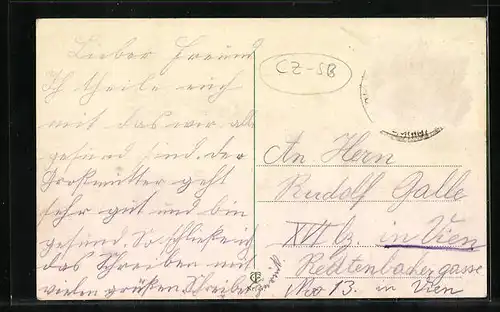 Lieber Freund
Ich theile euch
mit das wir alle
gesund sind. der
Großmutter geht
sehr gut und bin
gesund. So schließe ich
das Schreiben mit
vielen grüßen Schreibe
CZ-SB
An Hern
Rudolf Galle
XVI bz. in Wien
Redtenbachergasse
No 13. in Wien